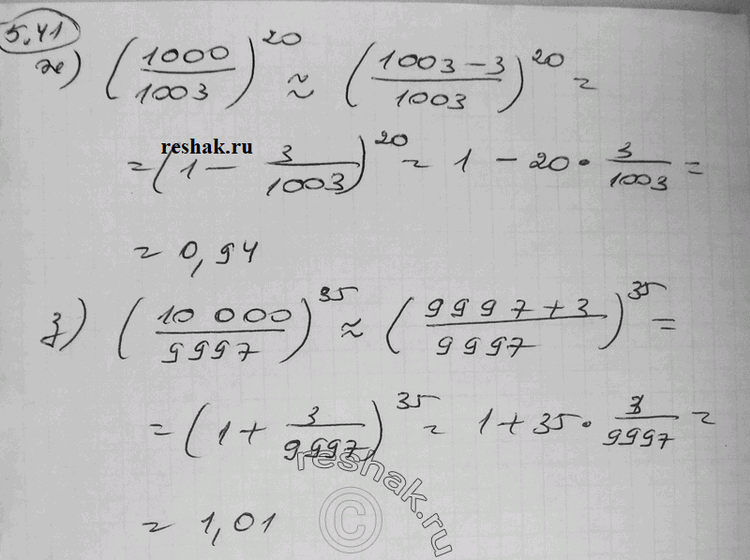 5.41
ж) (1000/1003)^20 ≈ (1003-3/1003)^20 =
reshak.ru
= (1 - 3/1003)^20 = 1 - 20 · 3/1003 =
= 0,94
з) (10 000/9997)^35 ≈ (9997+3/9997)^35 =
= (1 + 3/9997)^35 = 1 + 35 · 3/9997 =
reshak.ru
©
= 1,01